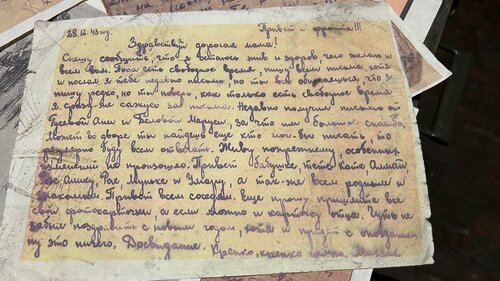 28.12.43 год. Привет с фронта!!!
Здравствуй дорогая мама!
Спешу сообщить, что я остаюсь жив и здоров, чего желаю и
всем вам. Пока есть свободное время, пишу всем письма, хотя
и послал я тебе недавно письмо, но ты все обижаешься что я
пишу редко, но ты поверь, как только есть свободное время
я сразу же сажусь за письма. Недавно получил письмо от
Гусевой Ани и Беловой Маруси, за что им большое спасибо.
Может во дворе ты найдешь еще кто мог-бы писать, то
регулярно буду всем отвечать. Живу попрежнему, особенных
изменений не произошло. Привет бабушке, тете Кате
Алику, Рае, Мупсике и Эмару, а так-же всем родным и
знакомым. Привет всем соседям. Еще прошу пришлите все
свои фотокарточки, а если можно и карточку отца. Чуть не
забыл поздравить с новым годом, хотя и придет с опозданием
ну это ничего. Досвидание. Крепко, крепко целую.